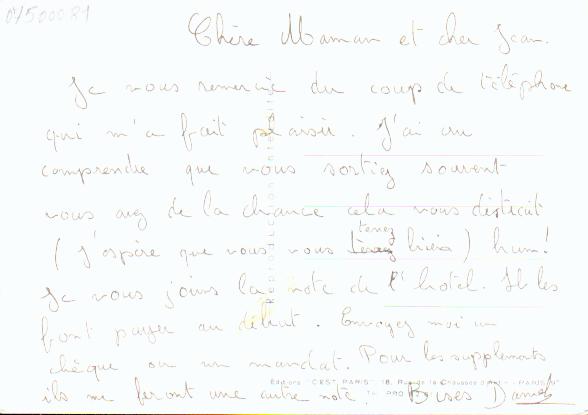 04500081
Chère Maman et cher Jean.
Je vous remercie du coup de téléphone
qui m'a fait plaisir. J'ai cru
comprendre que vous sortiez souvent
vous avez de la chance cela vous distrait
( J'espère que vous vous tenez bien ) hum!
Je vous joins la note de l'hotel. Il les
font payer au début. Envoyez moi un
chèque ou un mandat. Pour les suppléments
Editions "C'EST PARIS" 18, Rue de la Chaussée d'Antin - PARIS 9e
ils me feront une autre note. Bises Daniel
Reproduction interdite